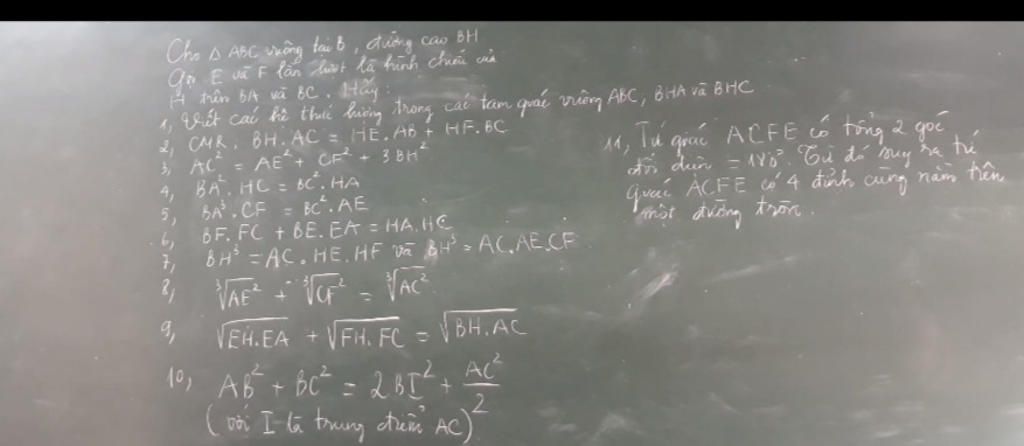 Cho △ ABC vuông tại B, đường cao BH
Gọi E và F lần lượt là hình chiếu của
H trên BA và BC. Hãy:
1, Viết các hệ thức lượng trong các tam giác vuông ABC, BHA và BHC
2, CMR. BH.AC = HE.AB + HF.BC
3, AC² = AE² + CF² + 3BH²
4, BA².HC = BC².HA
5, BA³.CF = BC³.AE
6, BF.FC + BE.EA = HA.HC
7, BH³ = AC.HE.HF và BH³ = AC.AE.CF
8, ∛AE² + ∛CF² = ∛AC²
9, √EH.EA + √FH.FC = √BH.AC
10, AB² + BC² = 2BI² + AC²/2
(với I là trung điểm AC)
11, Tứ giác ACFE có tổng 2 góc
đối diện = 180°. Từ đó suy ra tứ
giác ACFE có 4 đỉnh cùng nằm trên
một đường tròn.